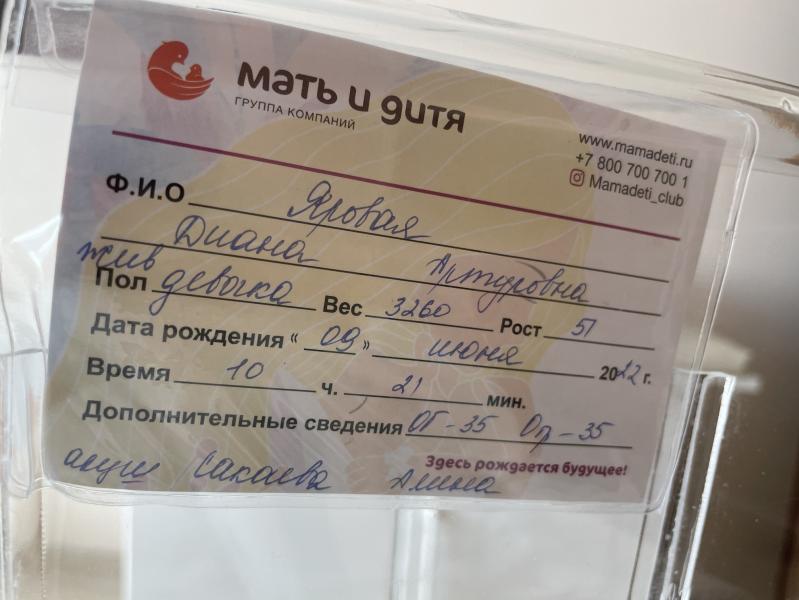 мать и дитя
ГРУППА КОМПАНИЙ
www.mamadeti.ru
+7 800 700 700 1
Mamadeti_club
Ф.И.О Яровая
Диана Артуровна
жив
Пол девочка Вес 3260 Рост 51
Дата рождения « 09 » июня 2022 г.
Время 10 ч. 21 мин.
Дополнительные сведения ОГ-35 Ог-35
Здесь рождается будущее!
акуш Сакаева Алина